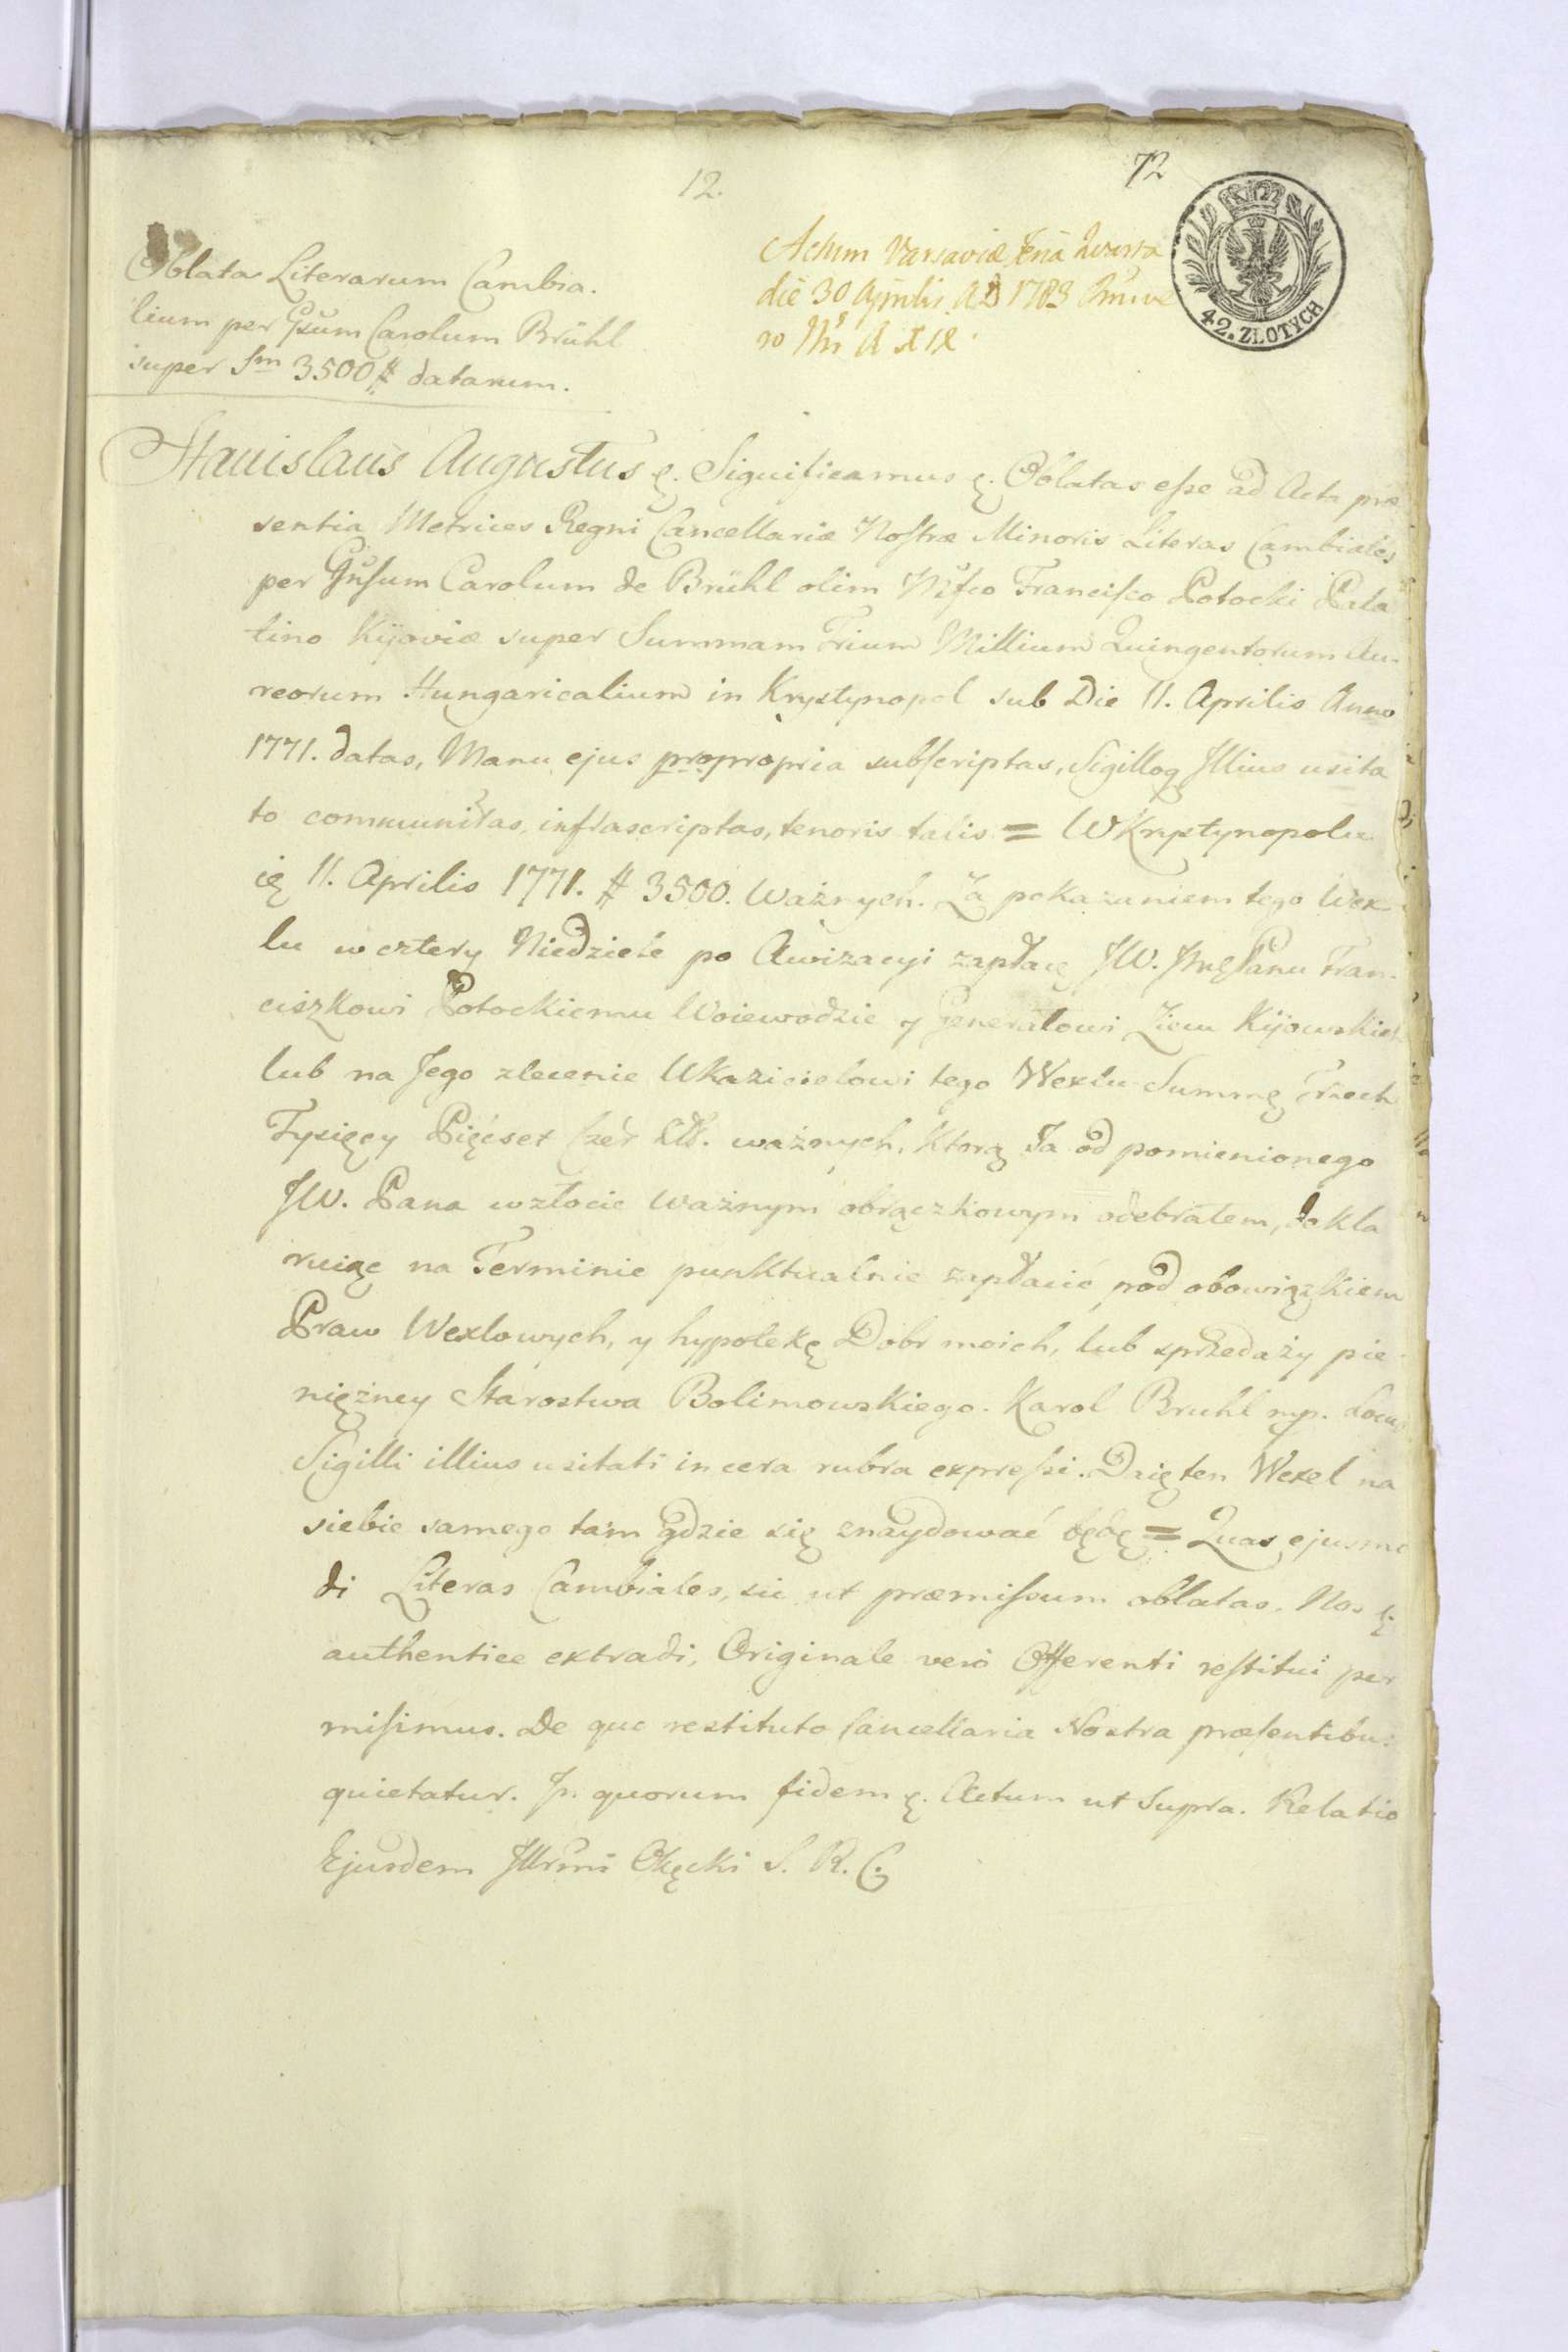 12.
72
42. ZLOTYCH
Oblata Literarum Cambia.
lium per Gsum Carolum Brühl
super Sm 3500 # datarum.
Actum Varsaviæ Feria Quarta
die 30 Aprilis AD 1783
Stanislaus Augustus &. Significamus &. Oblatas esse ad Acta præ
sentia Metrices Regni Cancellariæ Nostræ Minoris Literas Cambiales
per Carolum de Brühl olim Francisco Potocki Pala
tino Kijoviæ super Summam Trium Millium Quingentorum Au-
reorum Hungaricalium in Krystynopol sub Die 11. Aprilis Anno
1771. datas, Manu ejus propropria subscriptas, Sigilloq Illius usita
to communitas, infrascriptas, tenoris talis = W Krystynopolu
ię 11. Aprilis 1771. # 3500. Ważnych. Za pokazaniem tego Wex
lu w cztery Niedziele po Awizacyi zapłacę JW. Panu Fran-
ciszkowi Potockiemu Woiewodzie y Generałowi Ziem Kijowskich
lub na Jego zlecenie Ukazicielowi tego Wexlu Summę Trzech
Tysięcy Pięcset Czer Zł. ważnych, ktorą Ja od pomienionego
JW. Pana w złocie ważnym obrączkowym odebrałem, dekla
ruięc na Terminie punktualnie zapłacić pod obowiązkiem
Praw Wexlowych, y hypotekę Dobr moich, lub sprzedaży pie-
niężney Starostwa Bolimowskiego. Karol Bruhl mp. Locus
Sigilli illius usitati in cera rubra expressi. Daię ten Wexel na
siebie samego tam gdzie się znaydować będę = Quas ejusmo
di Literas Cambiales, sic ut præmissum oblatas. Nos &
authentice extradi, Originale vero Offerenti restitui per
misimus. De quo restituto Cancellaria Nostra præsentibus
quietatur. In quorum fidem &. Actum ut Supra. Relatio
Ejusdem Illrmi Okęcki S. R. C.